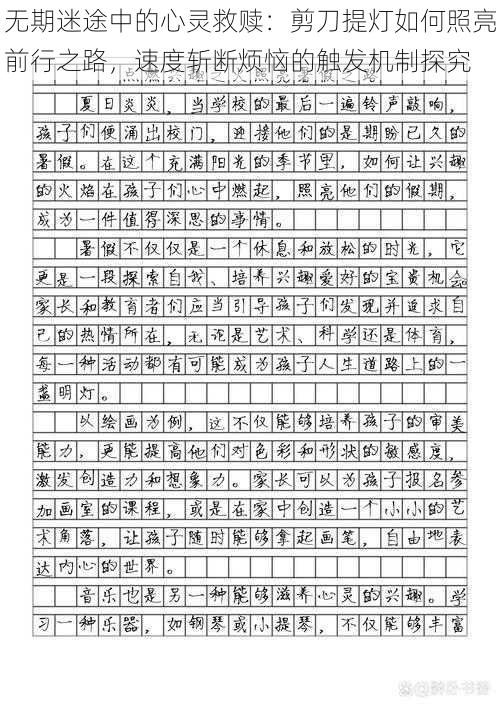 无期迷途中的心灵救赎：剪刀提灯如何照亮
前行之路，速度斩断烦恼的触发机制探究
点燃兴趣之火照亮暑假之路
夏日炎炎，当学校的最后一遍铃声敲响，
孩子们便涌出校门，迎接他们的是期盼已久的
暑假。在这个充满阳光的季节里，如何让兴趣
的火焰在孩子们心中燃起，照亮他们的假期，
成为一件值得深思的事情。
暑假不仅仅是一个休息和放松的时光，它
更是一段探索自我、培养兴趣爱好的宝贵机会
家长和教育者们应当引导孩子们发现并追求自
己的热情所在，无论是艺术、科学还是体育，
每一种活动都有可能成为孩子人生道路上的一
盏明灯。
以绘画为例，这不仅能够培养孩子的审美
能力，更能提高他们对色彩和形状的敏感度，
激发创造力和想象力。家长可以为孩子报名参
加画室的课程，或是在家中创造一个小小的艺
术角落，让孩子随时能够拿起画笔，自由地表
达内心的世界。
音乐也是另一种能够滋养心灵的兴趣。学
习一种乐器，如钢琴或小提琴，不仅能够丰富